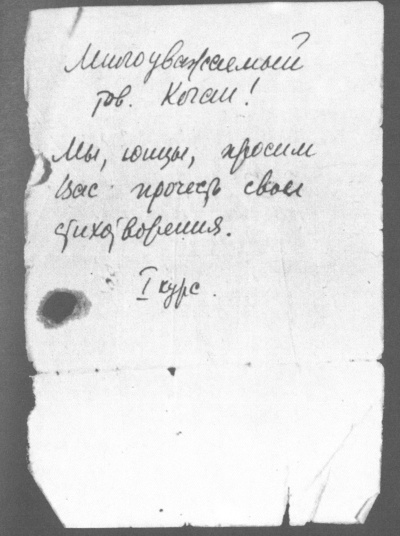 Милоуважаемый
тов. Коган!
Мы, юнцы, просим
Вас прочесть свои
стихотворения.
I курс.